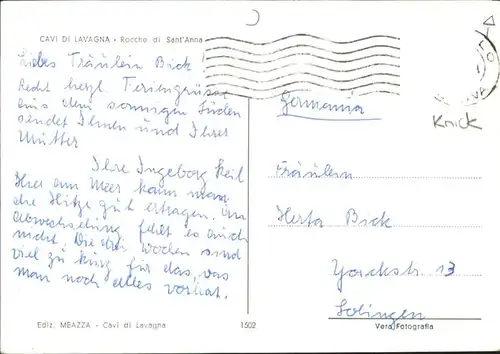 CAVI DI LAVAGNA - Rocche di Sant'Anna
Liebes Fräulein Bick!
Recht herzl. Feriengrüsse
aus dem sonnigen Süden
sendet Ihnen und Ihrer
Mutter
Ihre Ingeborg Keil
Hier am Meer kann man
die Hitze gut ertragen. An
Abwechselung fehlt es auch
nicht. Die drei Wochen sind
viel zu kurz für das, was
man noch alles vorhat.
Germania
Knick
Fräulein
Herta Bick
Yorckstr. 13
Solingen
Ediz. MEAZZA - Cavi di Lavagna
1502
Vera Fotografia